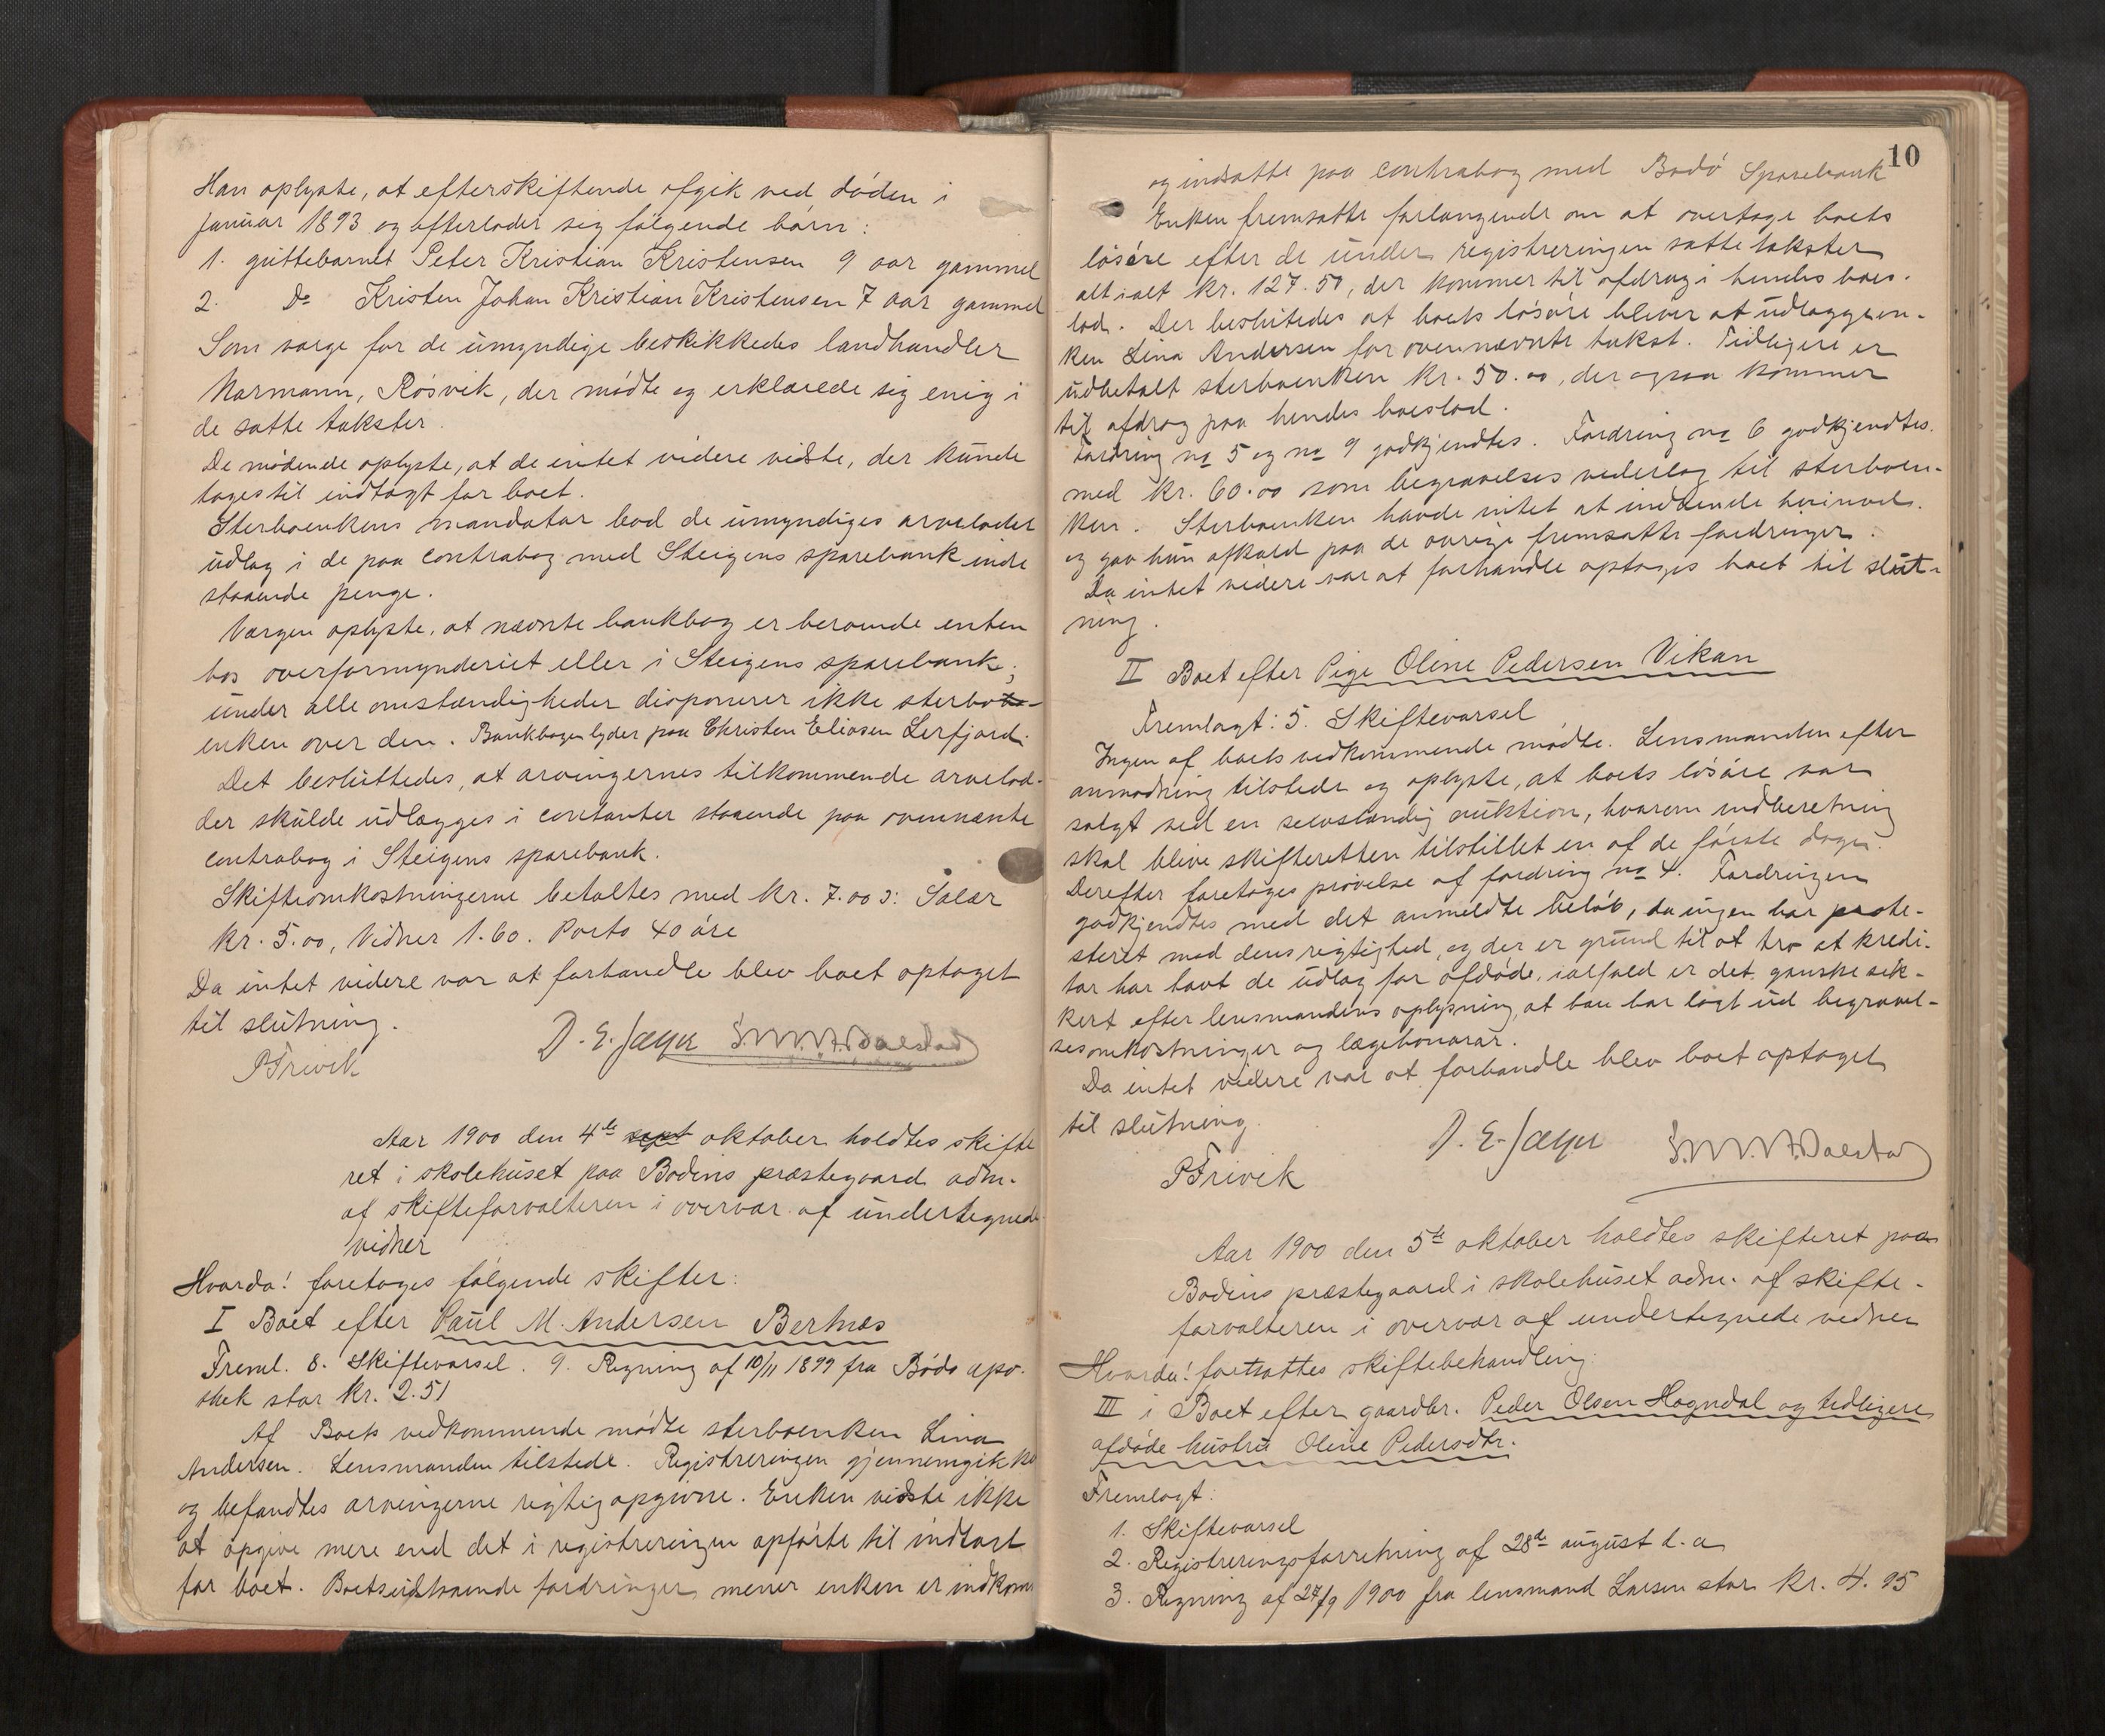 Han oplyste, at efterskiftende afgik ved døden i
januar 1893 og efterlader sig følgende børn:
1. guttebarnet Peter Kristian Kristensen 9 aar gammel
2. Do Kristen Johan Kristian Kristensen 7 aar gammel
Som værge for de umyndige beskikkedes landhandler
Normann, Røsvik, der mødte og erklærede sig enig i
de satte takster.
De mødende oplyste, at de intet videre vidste, der kunde
tages til indtægt for boet.
Sterboenkens mandatar bød de umyndiges arvelodder
udlæg i de paa contrabog med Steigens sparebank inde
staaende penge.
Værgen oplyste, at nævnte bankbog er beroende enten
hos overformynderiet eller i Steigens sparebank;
under alle omstændigheder disponerer ikke sterbo-
enken over den. Bankbogen lyder paa Christen Eliasen Lerfjord.
Det besluttedes, at arvingernes tilkommende arvelod-
der skulde udlægges i contanter staaende paa ovennævnte
contrabog i Steigens sparebank.
Skifteomkostningerne betaltes med kr. 7.00 ɔ: Salær
kr. 5.00, Vidner 1.60. Porto 40 øre
Da intet videre var at forhandle blev boet optaget
til slutning.
D. E. Jæger S.M.W.A. Dalstad
P Trivik
Aar 1900 den 4de sept oktober holdtes skifte
ret i skolehuset paa Bodins præstegaard adm.
af skifteforvalteren i overvær af undertegnede
vidner
Hvorda! foretoges følgende skifter:
I Boet efter Paul M. Andersen Bertnæs
Freml. 8. Skiftevarsel. 9. Regning af 10/11 1899 fra Bodø apo-
thek stor kr. 2.51
Af Boets vedkommende mødte sterboenken Lina
Andersen. Lensmanden tilstede. Registreringen gjennemgikkes
og befandtes arvingerne rigtig opgivne. Enken vidste ikke
at opgive mere end det i registreringen opførte til indtægt
for boet. Boets udstaaende fordringer mener enken er indkom
10
og indsatte paa contrabog med Bodø Sparebank
Enken fremsatte forlangende om at overtage boets
løsøre efter de under registreringen satte takster
alt ialt kr. 127.50, der kommer til afdrag i hendes boes-
lod. Der beslutedes at boets løsøre bliver at udlægge en-
ken Lina Andersen for ovennævnte takst. Tidligere er
udbetalt sterboenken kr. 50.00, der ogsaa kommer
til afdrag paa hendes boeslod.
Fordring no 5 og no 9 godkjendtes. Fordring no 6 godkjendtes
med kr. 60.00 som begravelses vederlag til sterboen-
ken. Sterboenken havde intet at indvende herimod.
og gav hun afkald paa de øvrige fremsatte fordringer.
Da intet videre var at forhandle optages boet til slut-
ning.
II Boet efter Pige Oline Pedersen Vikan
Fremlagt: 5. Skiftevarsel
Ingen af boets vedkommende mødte. Lensmanden efter
anmodning tilstede og oplyste, at boets løsøre var
solgt ved en selvstændig auktion, hvorom indberetning
skal blive skifteretten tilstillet en af de første dage.
Derefter foretoges prøvelse af fordring no 4. Fordringen
godkjendtes med det anmeldte beløb, da ingen har prote-
steret mod dens rigtighed, og der er grund til at tro at kredi-
tor har havt de udlæg for afdøde, ialfald er det ganske sik-
kert efter lensmandens oplysning, at han har lagt ud begravel-
sesomkostninger og lægehonorar.
Da intet videre var at forhandle blev boet optaget
til slutning.
D. E. Jæger S.M.W.A. Dalstad
P Trivik
Aar 1900 den 5te oktober holdtes skifteret paa
Bodins præstegaard i skolehuset adm. af skifte-
forvalteren i overvær af undertegnede vidner
Hvorda! fortsattes skiftebehandling
III i Boet efter gaardbr. Peder Olsen Hogndal og tidligere
afdøde hustru Oline Pedersdtr.
Fremlagt:
1. Skiftevarsel
2. Registreringsforretning af 28de august d. a
3. Regning af 27/9 1900 fra lensmand Larsen stor kr. 4.95